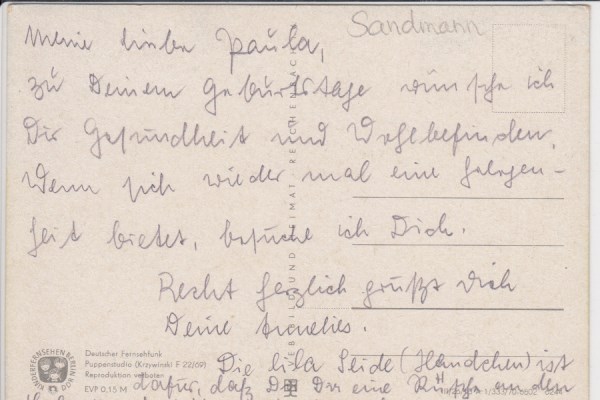 Sandmann
Meine liebe Paula,
zu Deinem Geburtstage wünsche ich
Dir Gesundheit und Wohlbefinden.
Wenn sich wieder mal eine Gelegen-
heit bietet, besuche ich Dich.
Recht herzlich grüßt Dich
Deine Annelies.
KINDERFERNSEHEN BERLIN DDR
Deutscher Fernsehfunk
Puppenstudio (Krzywinski) F 22/69)
Reproduktion verboten
EVP 0,15 M
Die lila Seide (Händchen) ist
dafür, daß Du Dir eine Rüsche an den